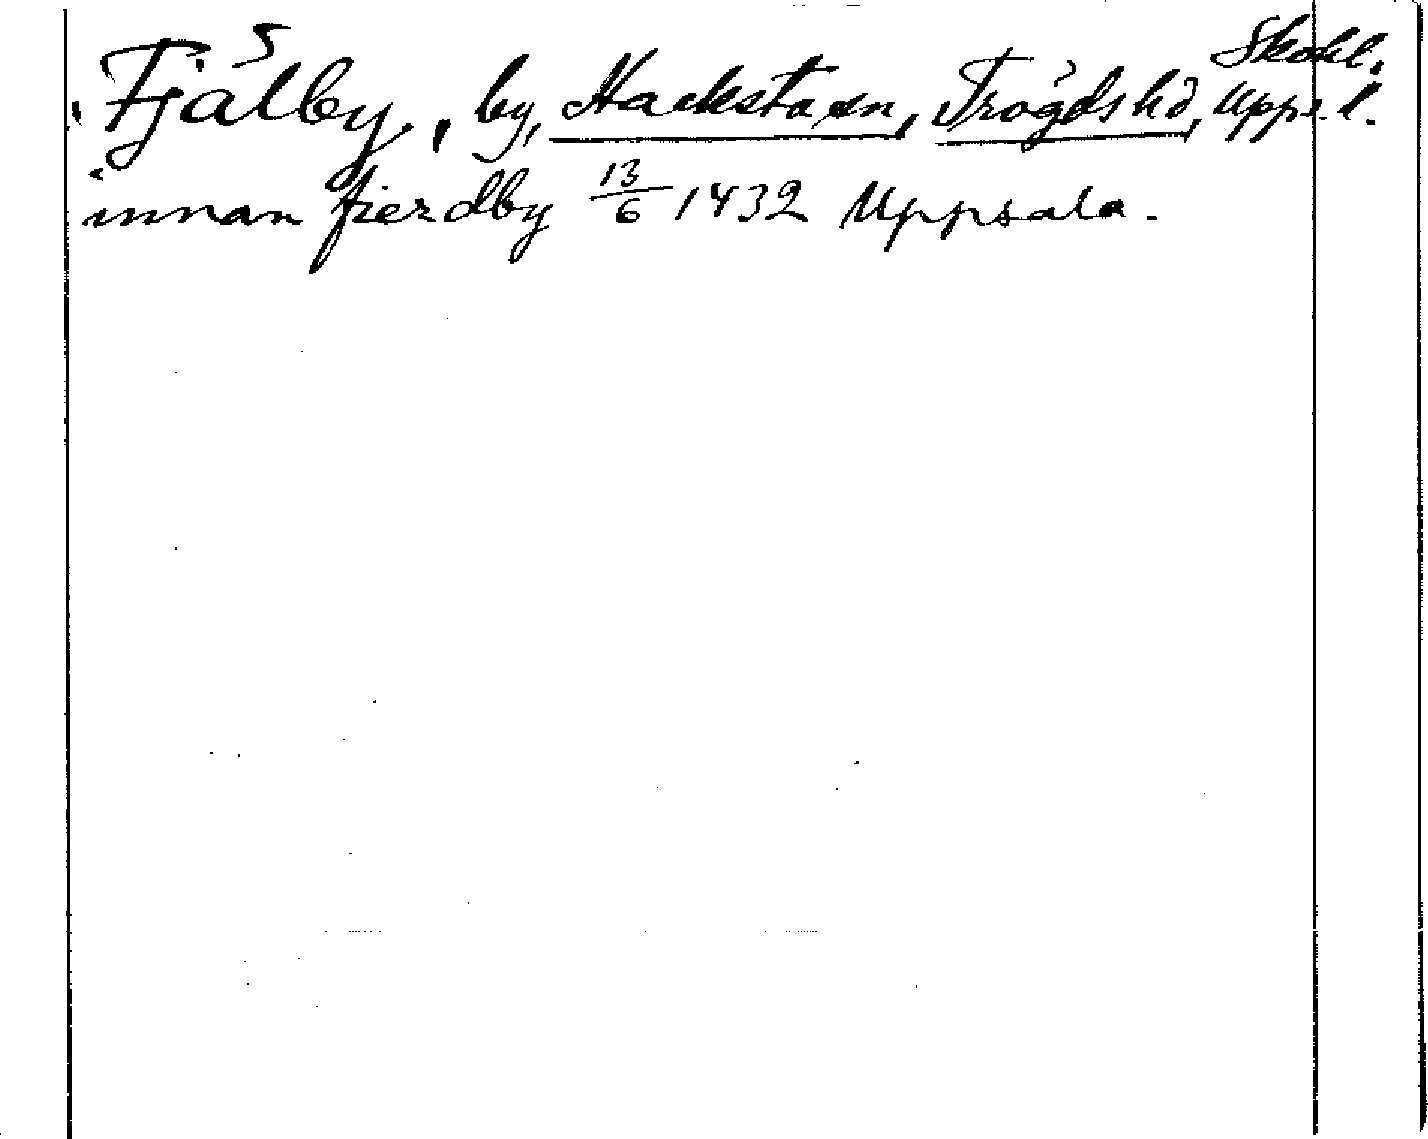 Skokl.
Fjälby, by, Hacksta sn, Trögds hd, Upps. l.
innan fierdby 13/6 1432 Uppsala.